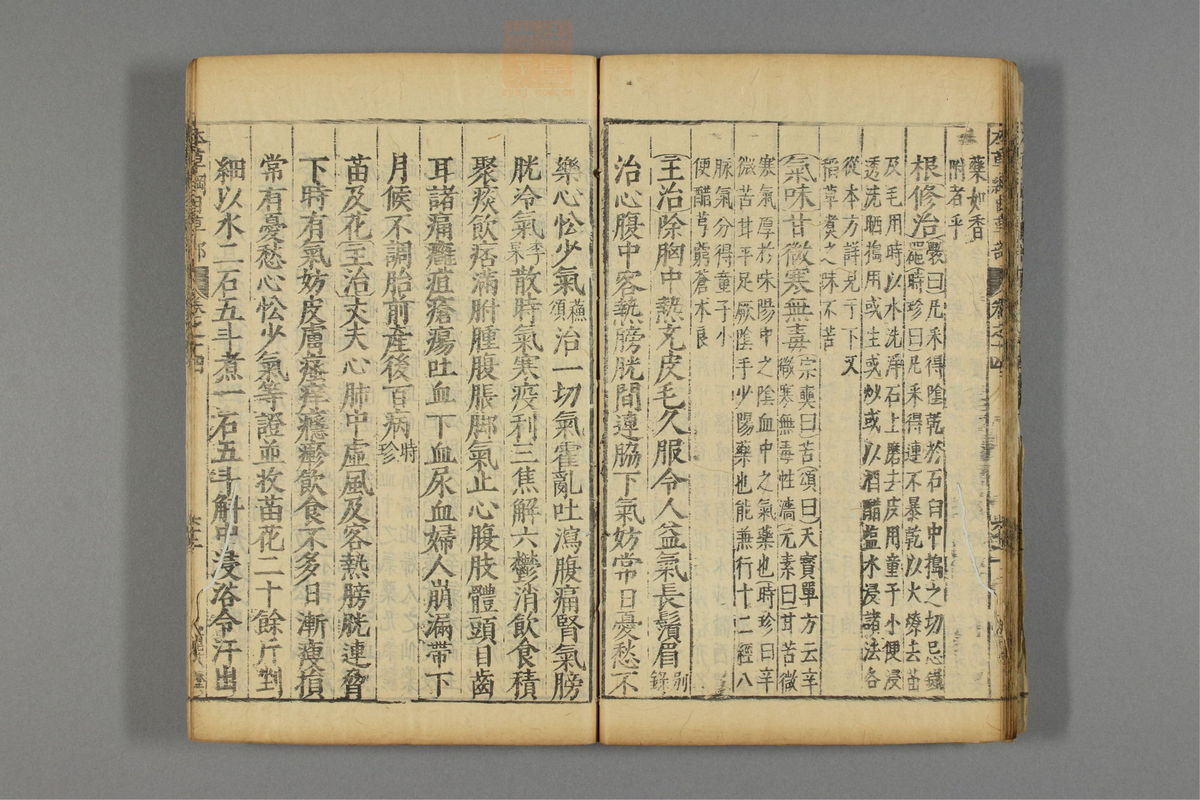 藥如香
附者乎
根修治斅曰凡采得陰乾於石臼中搗之切忌鐵
器時珍曰凡采得連苗暴乾以火燎去苗
及毛用時以水洗淨石上磨去皮用童子小便浸
透洗晒搗用或生或炒或以酒醋鹽水浸諸法各
從本方詳見于下又
稻草煮之味不苦
氣味甘微寒無毒宗奭曰苦頌曰天寶單方云辛
微寒無毒性濇元素曰甘苦微
寒氣厚於味陽中之陰血中之氣藥也時珍曰辛
微苦甘平足厥陰手少陽藥也能兼行十二經八
脉氣分得童子小
便醋芎藭蒼术良
主治除胸中熱充皮毛久服令人益氣長鬚眉別錄
治心腹中客熱膀胱間連脇下氣妨常日憂愁不
樂心忪少氣蘇頌治一切氣霍亂吐瀉腹痛腎氣膀
胱冷氣李杲散時氣寒疫利三焦解六鬱消飲食積
聚痰飲痞滿胕腫腹脹脚氣止心腹肢體頭目齒
耳諸痛癰疽瘡瘍吐血下血尿血婦人崩漏帶下
月候不調胎前產後百病時珍
苗及花主治丈夫心肺中虛風及客熱膀胱連脅
下時有氣妨皮膚瘙痒癮疹飲食不多日漸瘦損
常有憂愁心忪少氣等證並收苗花二十餘斤剉
細以水二石五斗煮一石五斗斛中浸浴令汗出